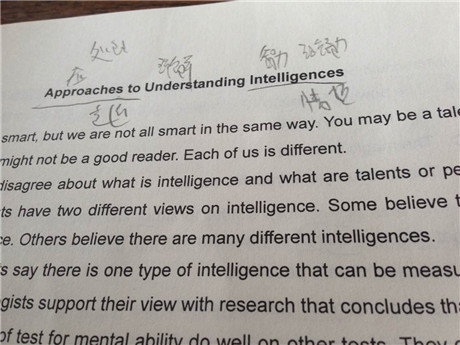 处理 理解 智力
Approaches to Understanding Intelligences
smart, but we are not all smart in the same way. You may be a tale
might not be a good reader. Each of us is different.
disagree about what is intelligence and what are talents or pe
ts have two different views on intelligence. Some believe t
ce. Others believe there are many different intelligences.
s say there is one type of intelligence that can be measu
gists support their view with research that concludes tha
of test for mental ability do well on other tests. They